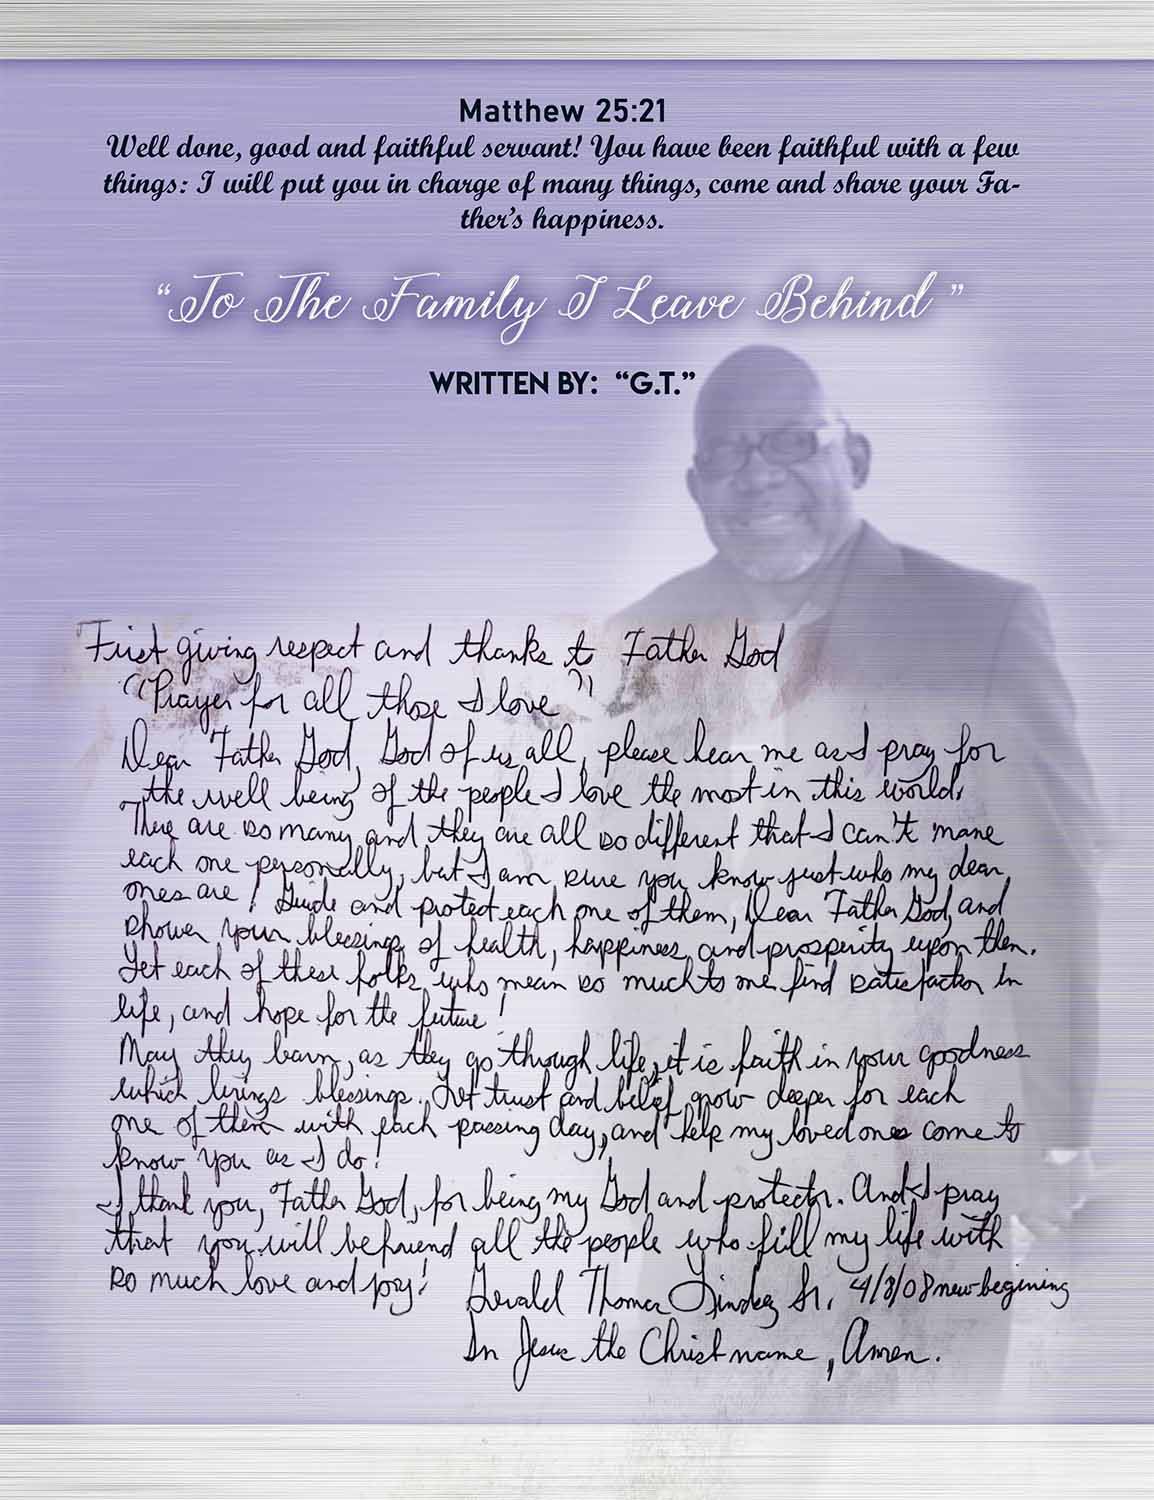 Matthew 25:21
Well done, good and faithful servant! You have been faithful with a few
things: I will put you in charge of many things, come and share your Fa-
ther's happiness.
“To The Family I Leave Behind”
WRITTEN BY: “G.T.”
First giving respect and thanks to Father God
“Prayer for all those I love”
Dear Father God, God of us all, please hear me as I pray for
the well being of the people I love the most in this world.
There are so many and they are all so different that I can't mane
each one personally, but I am sure you know just who my dear
ones are! Guide and protect each one of them, Dear Father God, and
shower your blessings of health, happiness, and prosperity upon them.
Let each of these folks who mean so much to me find satisfaction in
life, and hope for the future!
May they learn, as they go through life, it is faith in your goodness
which brings blessings. Let trust and belief grow deeper for each
one of them with each passing day, and help my loved ones come to
know you as I do!
I thank you, Father God, for being my God and protector. And I pray
that you will befriend all the people who fill my life with
so much love and joy!
Gerald Thomas Lindsey Sr. 4/8/08 new begining
In Jesus the Christ name, Amen.